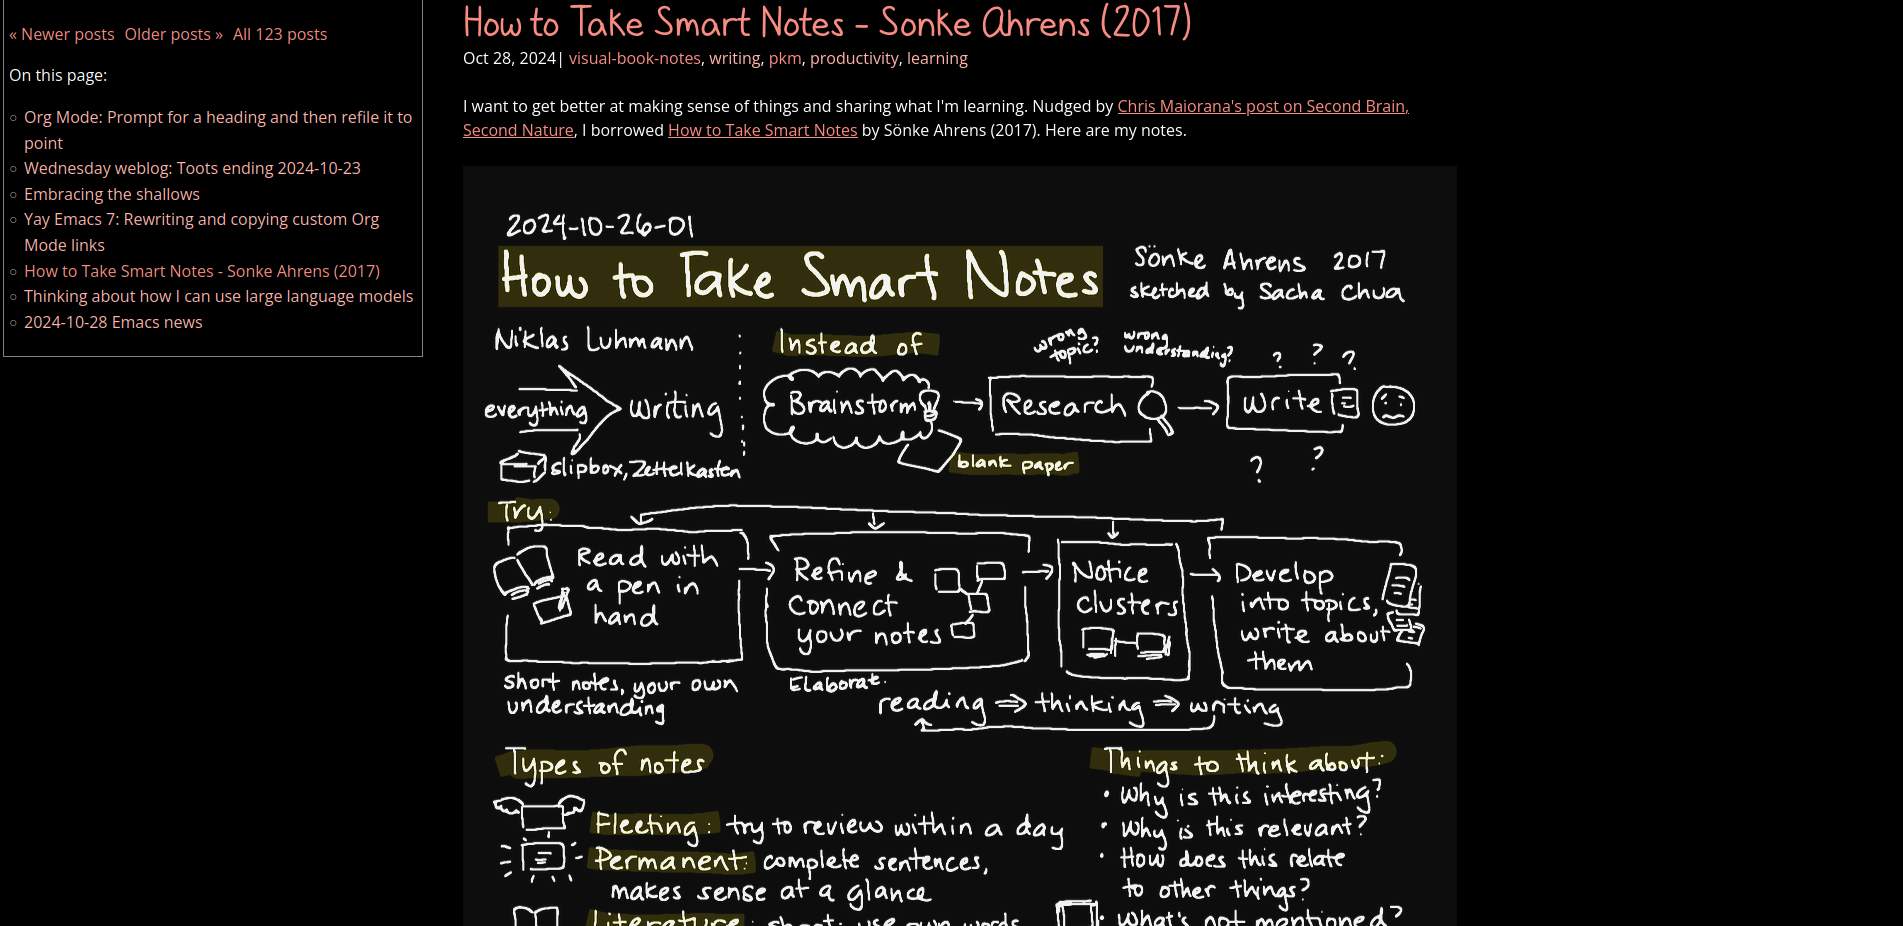 « Newer posts Older posts » All 123 posts
On this page:
Org Mode: Prompt for a heading and then refile it to
point
Wednesday weblog: Toots ending 2024-10-23
Embracing the shallows
Yay Emacs 7: Rewriting and copying custom Org
Mode links
How to Take Smart Notes - Sonke Ahrens (2017)
Thinking about how I can use large language models
2024-10-28 Emacs news
How to Take Smart Notes - Sonke Ahrens (2017)
Oct 28, 2024| visual-book-notes, writing, pkm, productivity, learning
I want to get better at making sense of things and sharing what I'm learning. Nudged by Chris Maiorana's post on Second Brain,
Second Nature, I borrowed How to Take Smart Notes by Sönke Ahrens (2017). Here are my notes.
2024-10-26-01
How to Take Smart Notes
Sönke Ahrens 2017
sketched by Sacha Chua
Niklas Luhmann
everything
writing
slipbox, Zettelkasten
Instead of
wrong
topic?
wrong
understanding?
? ? ?
Brainstorm
Research
Write
blank paper
? ?
Try:
Read with
a pen in
hand
short notes, your own
understanding
Refine &
connect
your notes
Elaborate.
Notice
clusters
Develop
into topics,
write about
them
reading ⇒ thinking ⇒ writing
Types of notes
Fleeting: try to review within a day
Permanent: complete sentences,
makes sense at a glance
Literature: short; use own words
Things to think about:
• Why is this interesting?
• Why is this relevant?
• How does this relate
to other things?
• What's not mentioned?